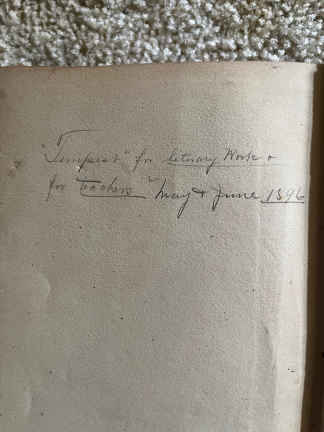 "Tempest" for literary Work &
for Teachers " May & June 1896